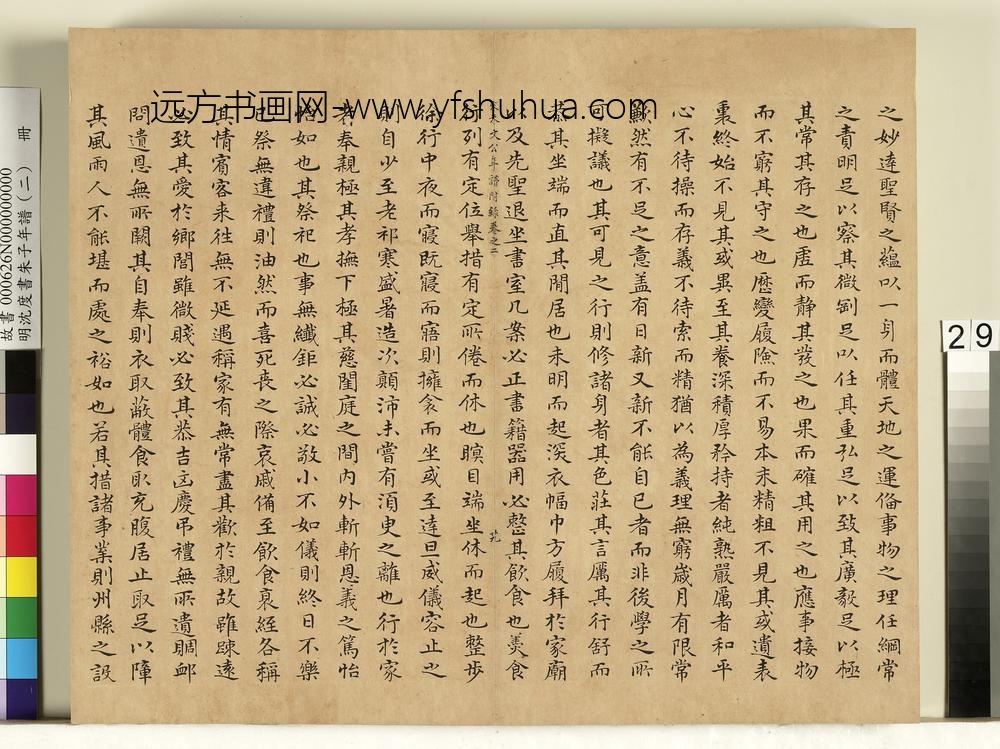 之妙達聖賢之蘊以一身而體天地之運俻事物之理任綱常
之責明足以察其微劉足以任其重弘足以致其廣毅足以極
其常其存之也虛而靜其發之也果而確其用之也應事接物
而不窮其守之也歷變履險而不易本末精粗不見其或遺表
裏終始不見其或異至其養深積厚矜持者純熟嚴厲者和平
心不待操而存義不待索而精猶以為義理無窮歲月有限常
歉然有不足之意盖有日新又新不能自已者而非後學之所
可擬議也其可見之行則修諸身者其色莊其言厲其行舒而
恭其坐端而直其閒居也未明而起深衣幅巾方履拜於家廟
以及先聖退坐書室几案必正書籍器用必整其飲食也羮食
朱文公年譜附錄卷之二
行列有定位舉措有定所倦而休也瞑目端坐休而起也整步
徐行中夜而寢既寢而寤則擁衾而坐或至達旦威儀容止之
則自少至老祁寒盛暑造次顛沛未嘗有湏臾之離也行於家
者奉親極其孝撫下極其慈閨庭之間內外斬斬恩義之篤怡
怡如也其祭祀也事無纖鉅必誠必敬小不如儀則終日不樂
已祭無違禮則油然而喜死喪之際哀戚備至飲食衰絰各稱
其情賓客来徃無不延遇稱家有無常盡其歡於親故雖踈遠
必致其愛於鄉閭雖微賤必致其恭吉凶慶吊禮無所遺賙卹
問遺恩無所闕其自奉則衣取蔽體食取充腹居止取足以障
其風雨人不能堪而處之裕如也若其措諸事業則州縣之設
远方书画网-www.yfshuhua.com
故書 000626N000000000
明沈度書朱子年譜(二) 冊
29